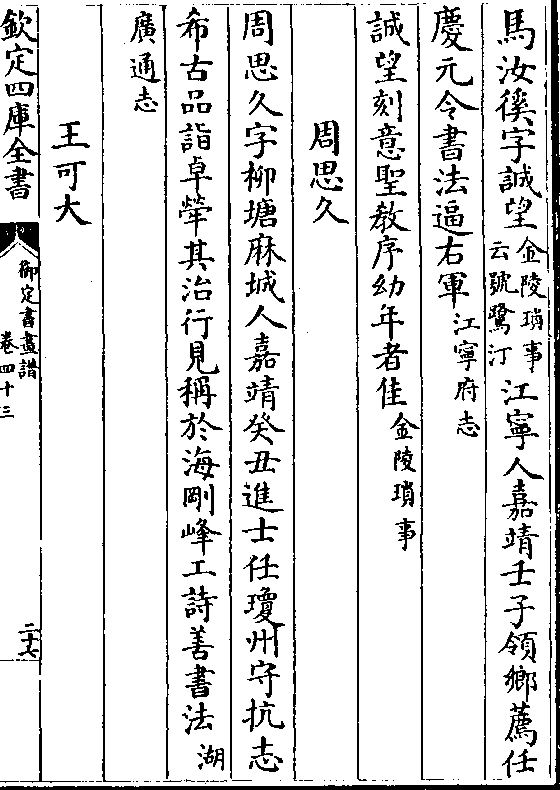 馬汝徯字誠望金陵瑣事云號鷺汀江寧人嘉靖壬子領鄉薦任
慶元令書法逼右軍江寧府志
誠望刻意聖教序幼年者佳金陵瑣事
周思久
周思久字柳塘麻城人嘉靖癸丑進士任瓊州守抗志
希古品詣卓犖其治行見稱於海剛峰工詩善書法湖
廣通志
王可大
欽定四庫全書
御定書畫譜
卷四十三
二十七